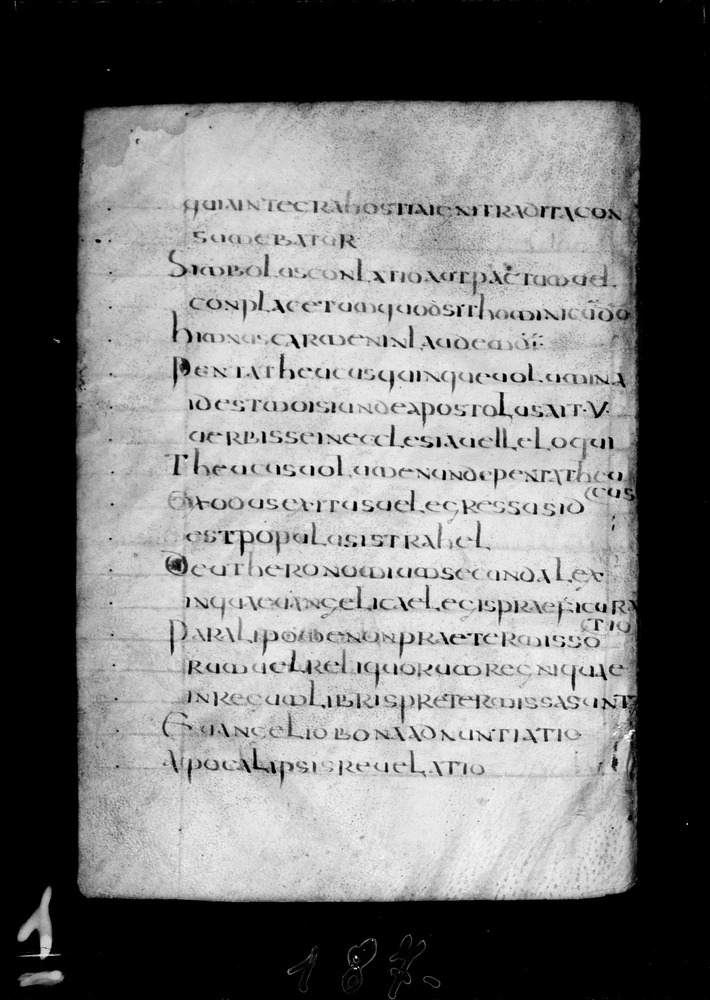 quiaintecrahostiaignitraditacon
sumebatur
Simboluscon Latioautpactumuel
conplacetumquodsithominicūdō
himnuscarmeninlaudemdi:
Pentatheucusquinqueuolumina
idestmoisiundeapostolusait·V·
uerbisseineccLesiauelleloqui
Theucusuolumenundepentatheu
cus
Exodusexitusuelegressusid
estpopulusistrahel
Deutheronomiumsecundalex
inquaeuangelicaelegispraefigura
tio
Paralipomenonpraetermissō
rumuelreliquorumregniquae
inregumlibrispretermissasunt
Euangeliobonaadnuntiatio
Apocalipsisreuelatio
1
187.